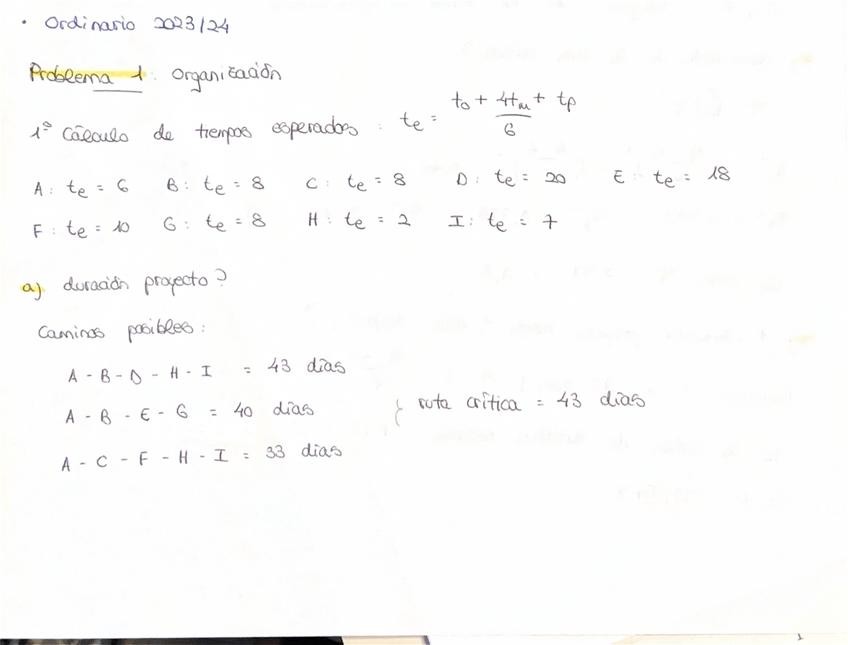 · Ordinario 2023/24
Problema 1: Organización
1º Cálculo de tiempos esperados : te = to + 4tm + tp / 6
A: te = 6 B: te = 8 C: te = 8 D: te = 20 E: te = 18
F: te = 10 G: te = 8 H: te = 2 I: te = 7
a) duración proyecto?
Caminos posibles:
A - B - D - H - I = 43 días
A - B - E - G = 40 días } ruta crítica = 43 días
A - C - F - H - I = 33 días
1